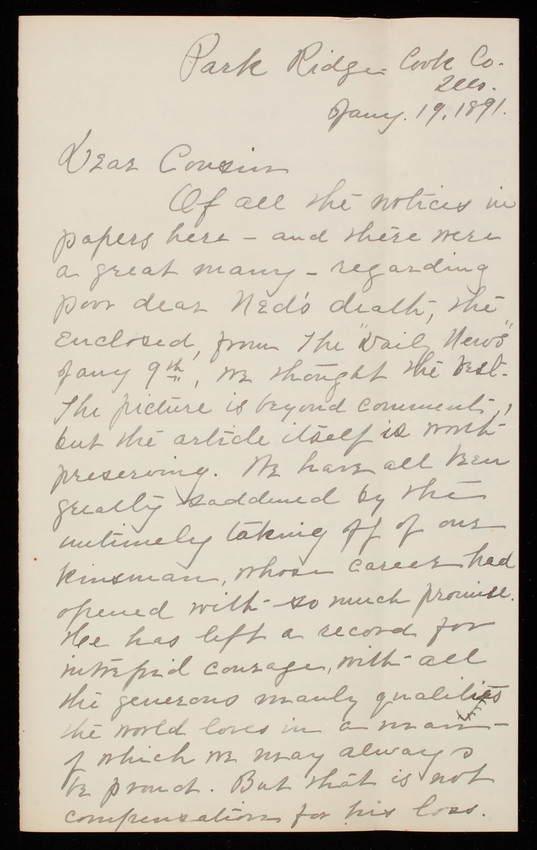 Park Ridge Cook Co.
Ills.
Jany. 19, 1891.
Dear Cousin
Of all the notices in
papers here - and there were
a great many - regarding
poor dear Ned's death, the
enclosed, from The "Daily News"
Jany 9th, we thought the best.
The picture is beyond comment,
but the article itself is worth
preserving. We have all been
greatly saddened by the
untimely taking off of our
kinsman, whose career had
opened with so much promise.
He has left a record for
intrepid courage, with all
the generous manly qualities
the world loves in a man -
of which we may always
be proud. But that is not
compensation for his loss.